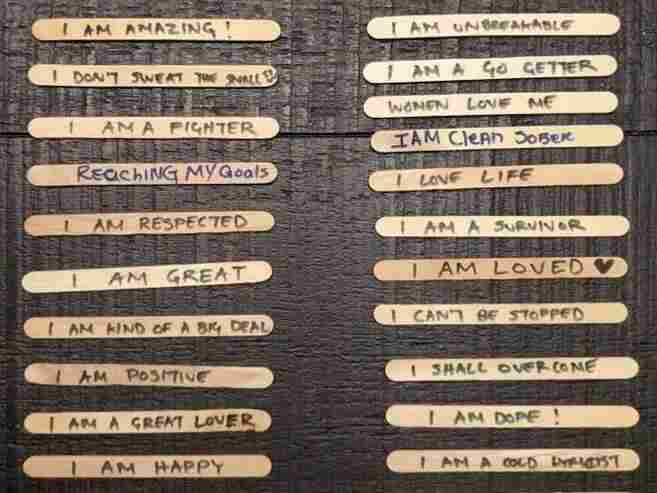 I AM AMAZING!
I DON'T SWEAT THE SMALL
I AM A FIGHTER
REACHING MY Goals
I AM RESPECTED
I AM GREAT
I AM KIND OF A BIG DEAL
I AM POSITIVE
I AM A GREAT LOVER
I AM HAPPY
I AM UNBREAKABLE
I AM A GO GETTER
WOMEN LOVE ME
I AM Clean SOBER
I LOVE LIFE
I AM A SURVIVOR
I AM LOVED ♥
I CAN'T BE STOPPED
I SHALL OVERCOME
I AM DOPE!
I AM A COLD LYRICIST